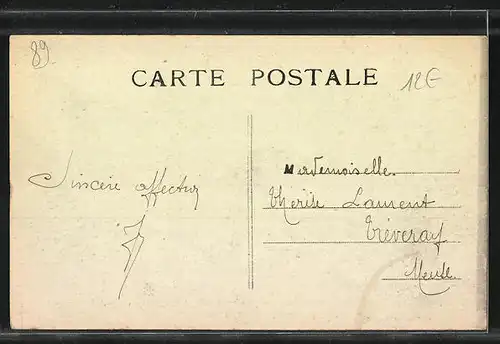 89
CARTE POSTALE
12€
Sincère affection
Mademoiselle
Thérèse Laurent
Tréveray
Meuse